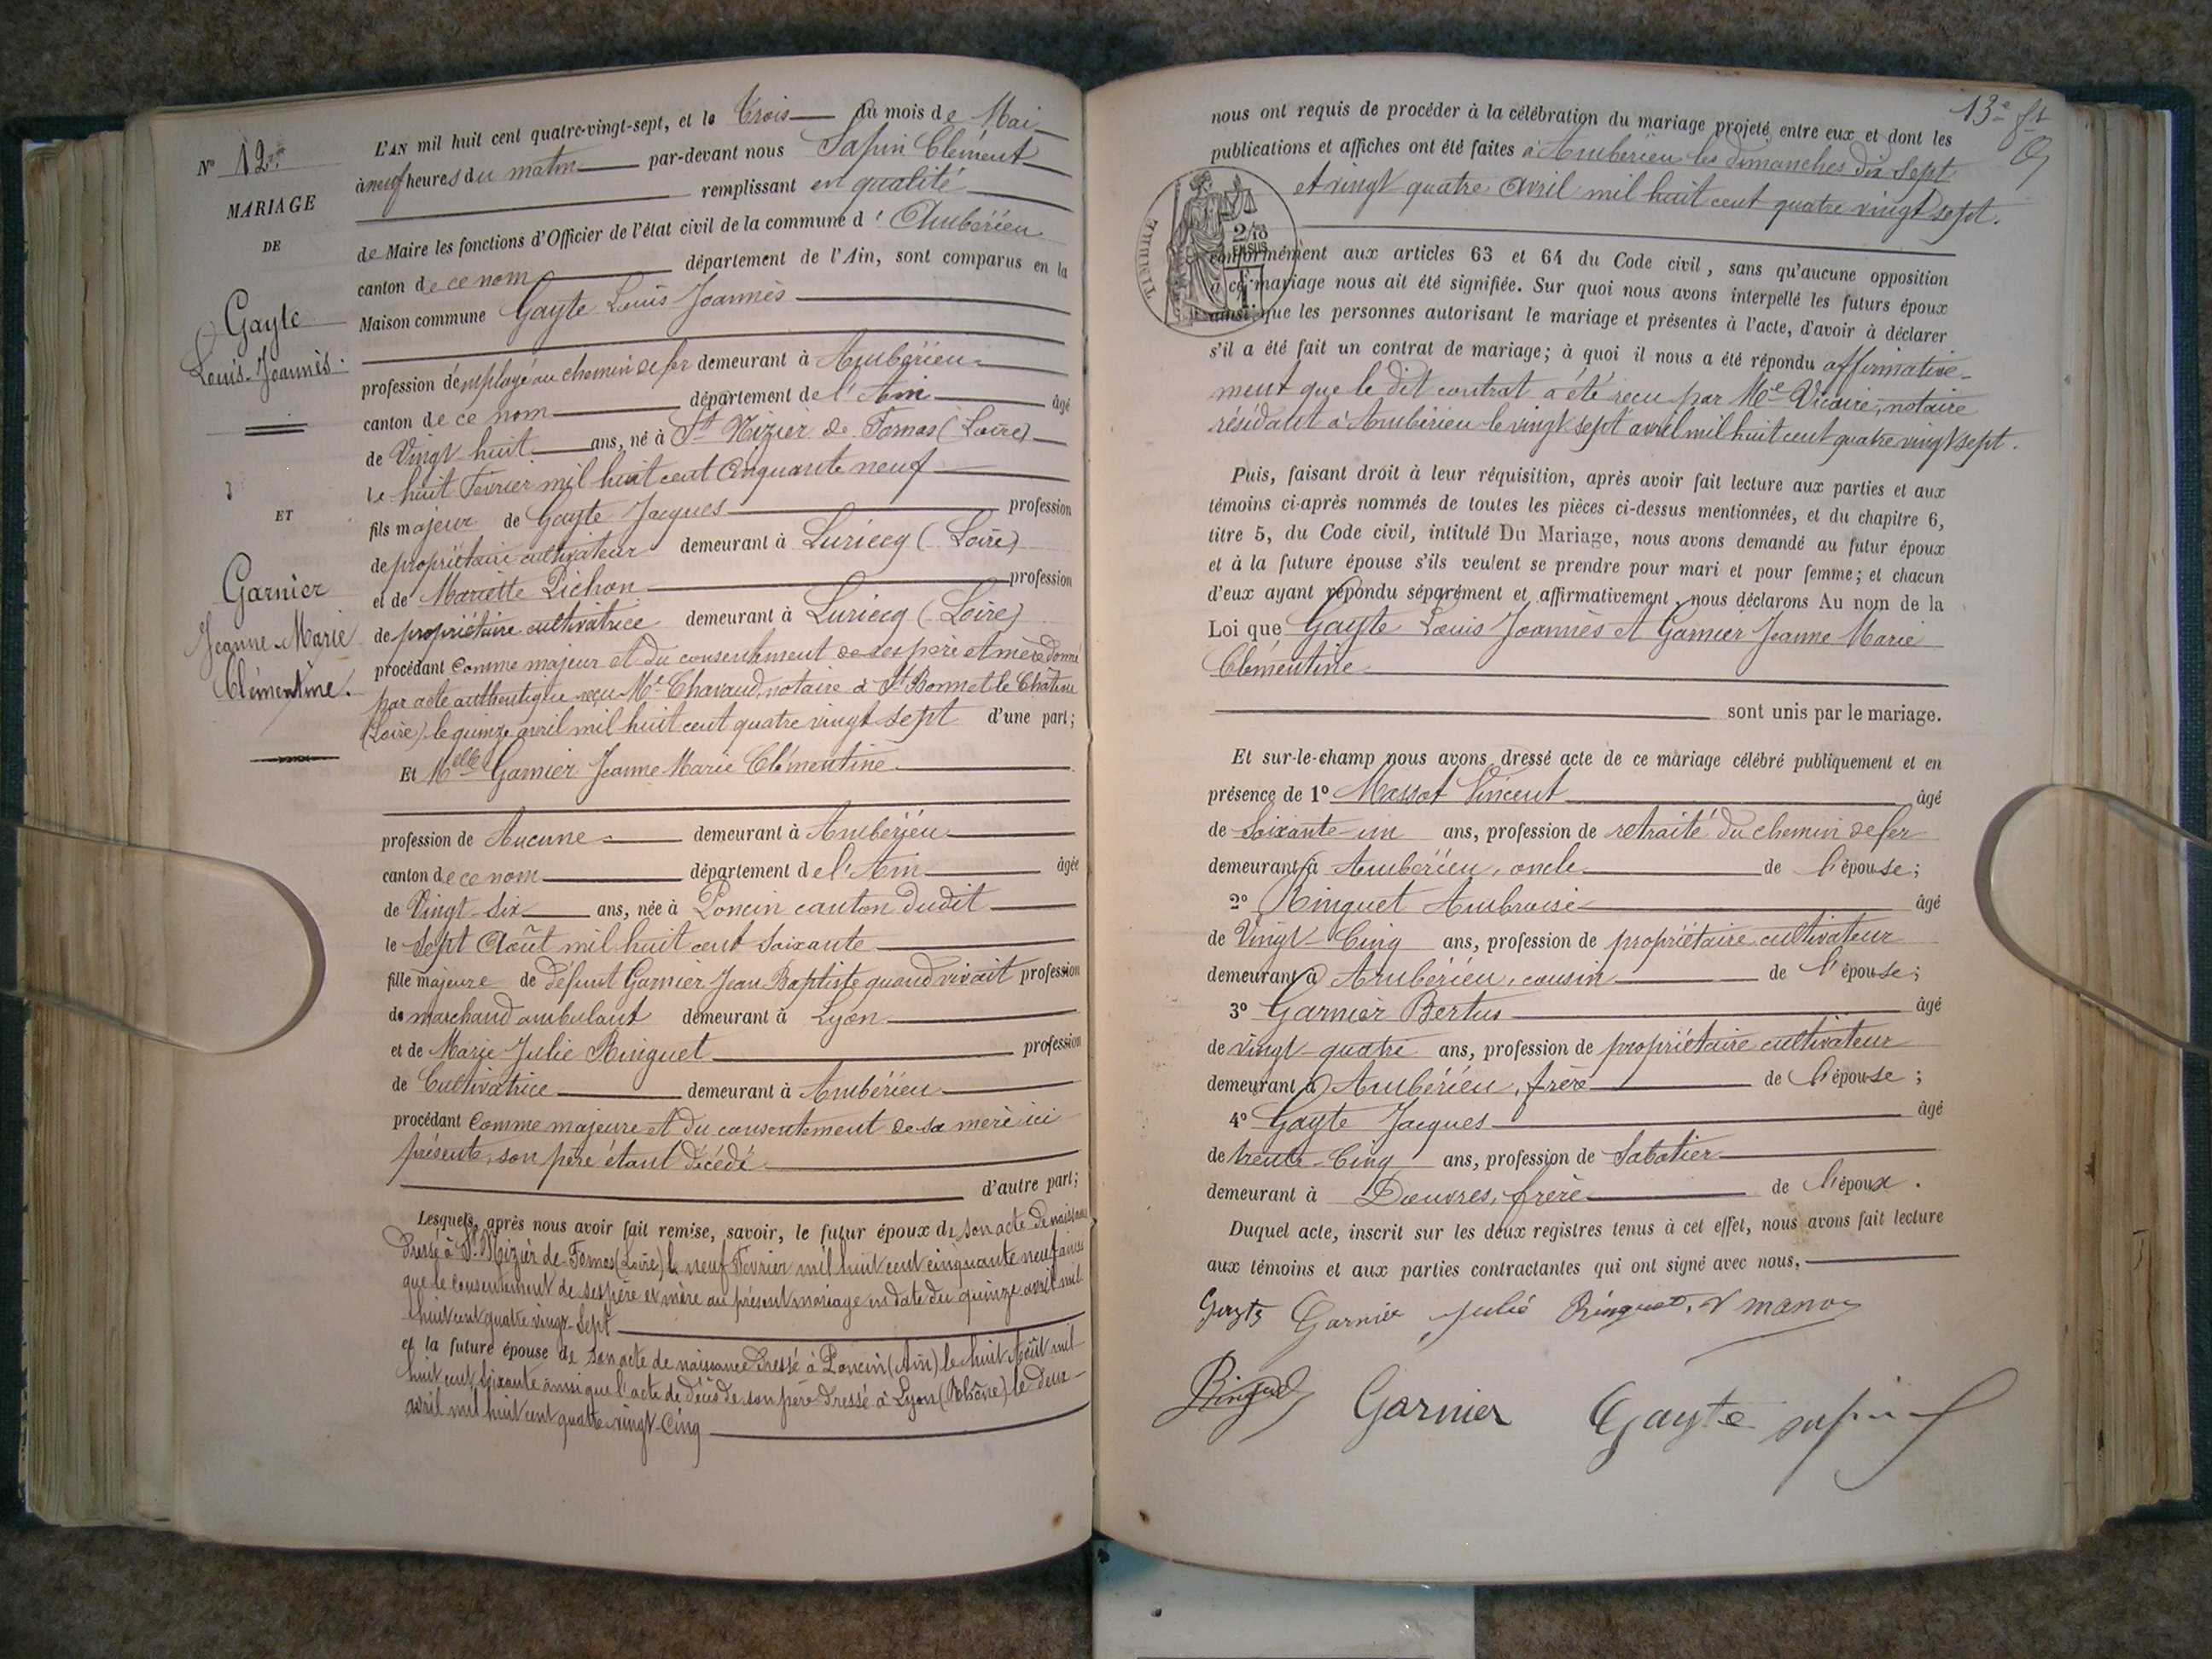 N° 12
MARIAGE
DE
Gayte
Louis-Joannès
ET
Garnier
Jeanne-Marie
Clémentine.
L'AN mil huit cent quatre-vingt-sept, et le Trois du mois de Mai
à neuf heures du matin par-devant nous Sapin Clément
remplissant en qualité
de Maire les fonctions d'Officier de l'état civil de la commune d'Ambérieu
canton de ce nom département de l'Ain, sont comparus en la
Maison commune Gayte Louis Joannès
profession d'employé au chemin de fer demeurant à Ambérieu
canton de ce nom département de l'Ain âgé
de Vingt huit ans, né à St Nizier de Fornas (Loire)
le huit Février mil huit cent Cinquante neuf
fils majeur de Gayte Jacques profession
de propriétaire cultivateur demeurant à Luriecq (Loire)
et de Mariette Pichon profession
de propriétaire cultivatrice demeurant à Luriecq (Loire)
procédant Comme majeur et du consentement de ses père et mère donné
par acte authentique reçu Me Chavaud, notaire à St Bonnet le Château
(Loire) le quinze avril mil huit cent quatre vingt sept d'une part;
Et Melle Garnier Jeanne Marie Clémentine
profession de Aucune demeurant à Ambérieu
canton de ce nom département de l'Ain âgée
de Vingt-Six ans, née à Poncin canton dudit
le Sept Août mil huit cent Soixante
fille majeure de défunt Garnier Jean Baptiste quand vivait profession
de marchand ambulant demeurant à Lyon
et de Marie Julie Ringuet profession
de Cultivatrice demeurant à Ambérieu
procédant Comme majeure et du consentement de sa mère ici
présente, son père étant décédé
d'autre part;
Lesquels, après nous avoir fait remise, savoir, le futur époux de son acte de naissance
dressé à St Nizier de Fornas (Loire) le neuf Février mil huit cent cinquante neuf ainsi
que le consentement de ses père et mère au présent mariage en date du quinze avril mil
huit cent quatre vingt-Sept
et la future épouse de son acte de naissance dressé à Poncin (Ain) le huit Août mil
huit cent Soixante ainsi que l'acte de décès de son père dressé à Lyon (Rhône) le deux
avril mil huit cent quatre-vingt-Cinq
13e ft
nous ont requis de procéder à la célébration du mariage projeté entre eux et dont les
publications et affiches ont été faites à Ambérieu les dimanches dix Sept
et vingt quatre Avril mil huit cent quatre vingt sept.
TIMBRE
2/10
EN SUS
conformément aux articles 63 et 64 du Code civil, sans qu'aucune opposition
à ce mariage nous ait été signifiée. Sur quoi nous avons interpellé les futurs époux
ainsi que les personnes autorisant le mariage et présentes à l'acte, d'avoir à déclarer
s'il a été fait un contrat de mariage; à quoi il nous a été répondu affirmative-
ment que le dit contrat a été reçu par Me Vicaire, notaire
résidant à Ambérieu le vingt sept avril mil huit cent quatre vingt sept.
Puis, faisant droit à leur réquisition, après avoir fait lecture aux parties et aux
témoins ci-après nommés de toutes les pièces ci-dessus mentionnées, et du chapitre 6,
titre 5, du Code civil, intitulé Du Mariage, nous avons demandé au futur époux
et à la future épouse s'ils veulent se prendre pour mari et pour femme; et chacun
d'eux ayant répondu séparément et affirmativement, nous déclarons Au nom de la
Loi que Gayte Louis Joannès et Garnier Jeanne Marie
Clémentine
sont unis par le mariage.
Et sur-le-champ nous avons dressé acte de ce mariage célébré publiquement et en
présence de 1° Massot Vincent âgé
de Soixante-un ans, profession de retraité du chemin de fer
demeurant à Ambérieu, oncle de l'épouse;
2° Ringuet Ambroise âgé
de Vingt-Cinq ans, profession de propriétaire cultivateur
demeurant à Ambérieu, cousin de l'épouse;
3° Garnier Bertus âgé
de vingt-quatre ans, profession de propriétaire cultivateur
demeurant à Ambérieu, frère de l'épouse;
4° Gayte Jacques âgé
de trente-Cinq ans, profession de Sabotier
demeurant à Douvres, frère de l'époux.
Duquel acte, inscrit sur les deux registres tenus à cet effet, nous avons fait lecture
aux témoins et aux parties contractantes qui ont signé avec nous,
Gayte Garnier Julie Ringuet
Ringuet Garnier Gayte Sapin